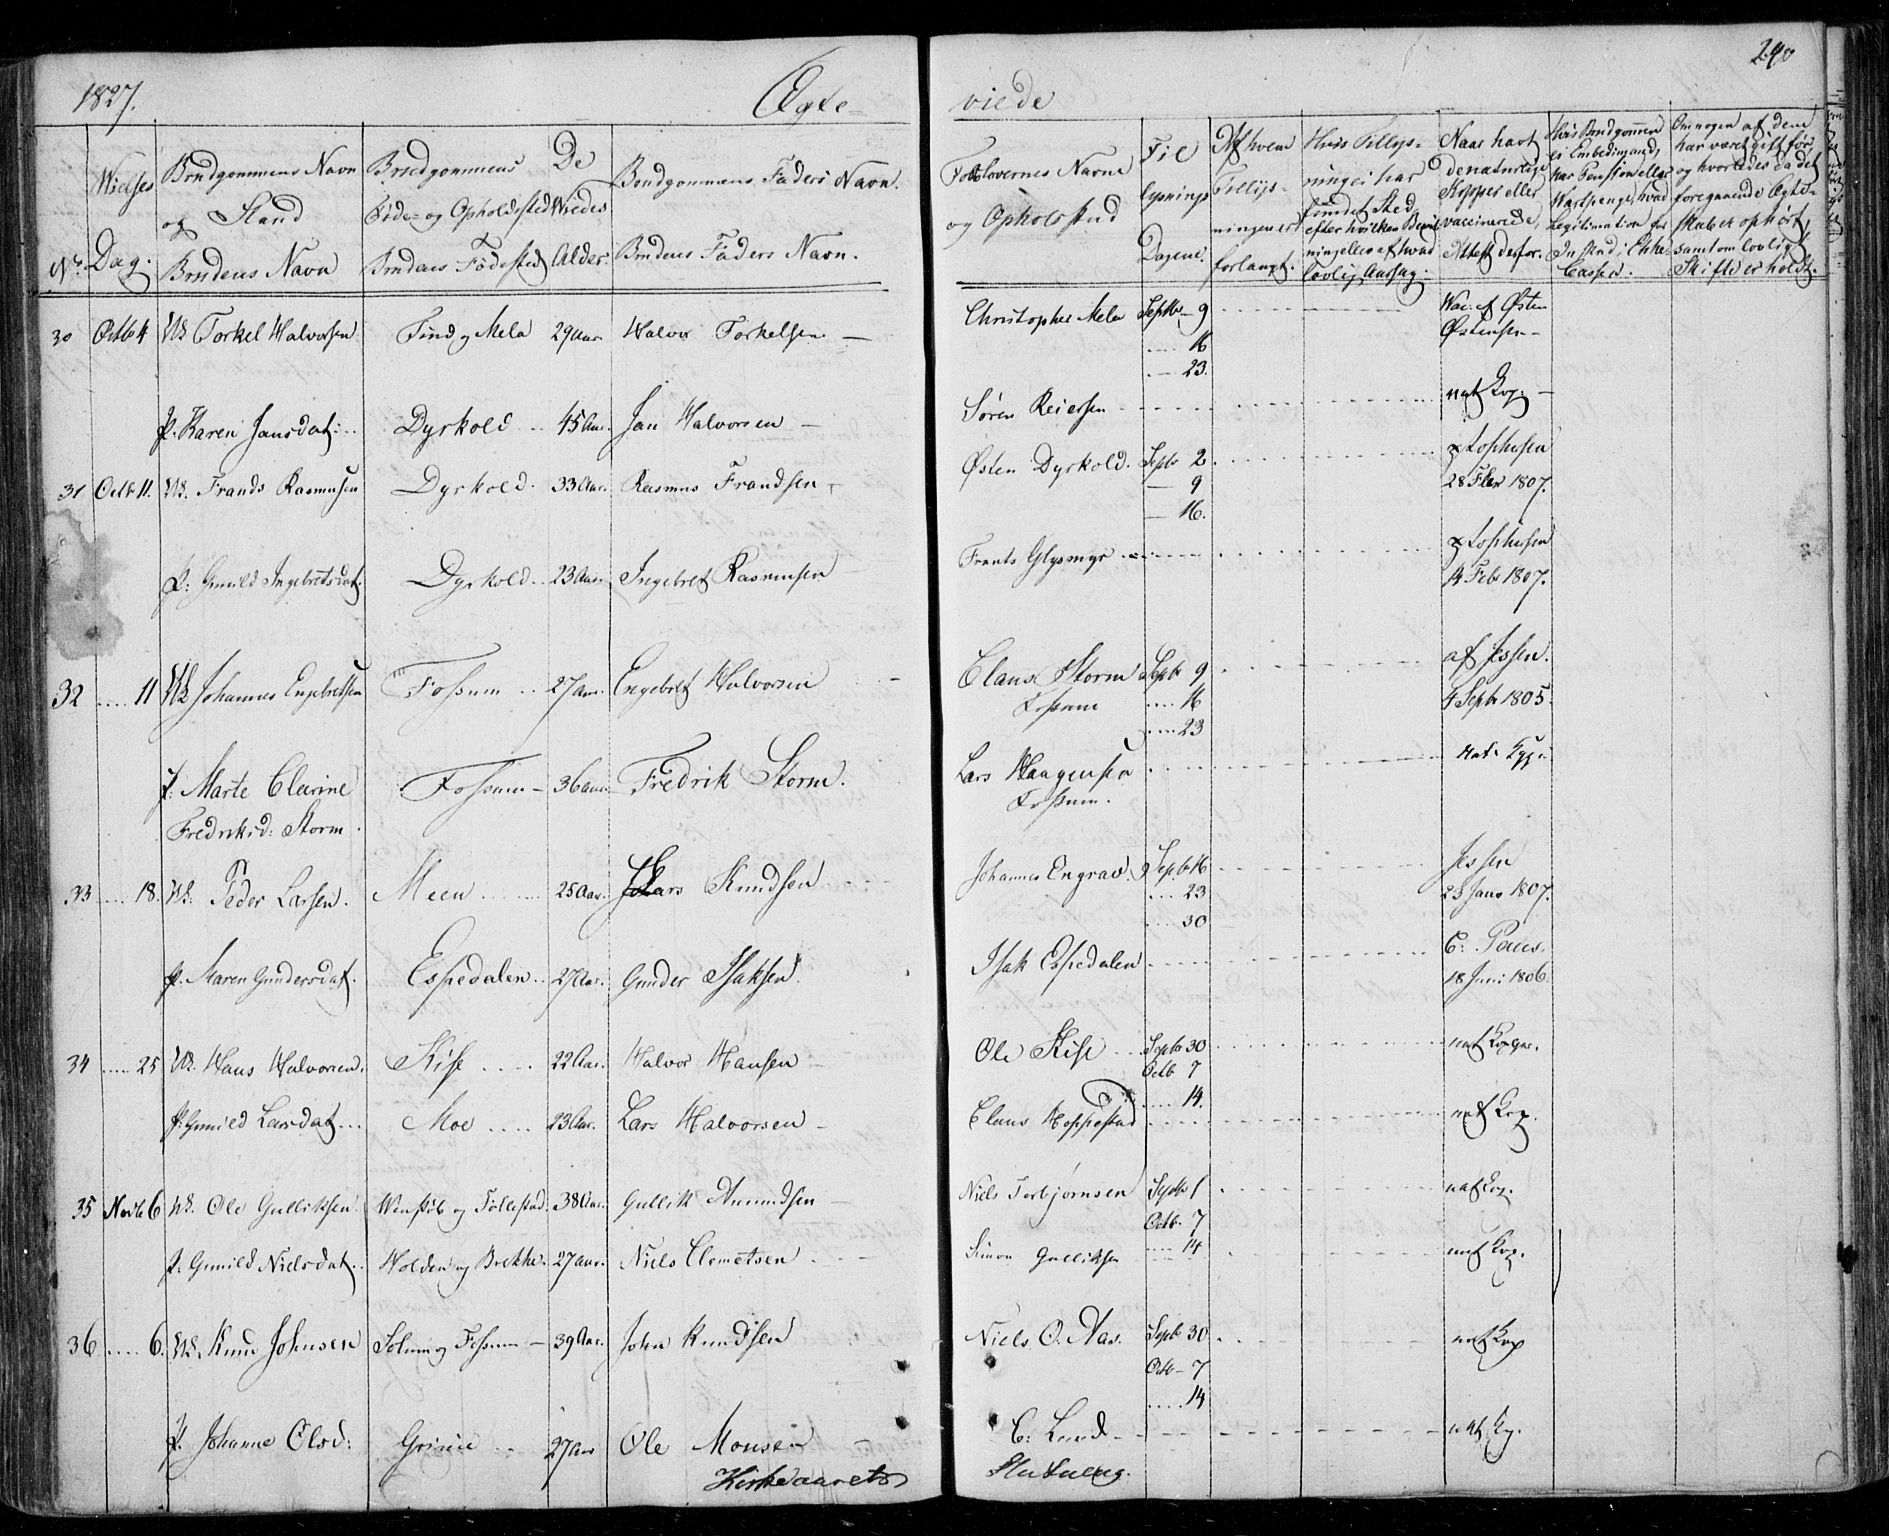 1827. Ægte- viede 240
No. Vielses Dag. Brudgommens Navn og Stand Brudens Navn
Brudgommens Føde- og Opholdssted Brudens Fødested
De Viedes Alder
Brudgommens Faders Navn. Brudens Faders Navn.
Forlovernes Navne og Opholdsted
Til lysnings Dagene.
Af hvem Tillysningen er forlangt.
Hvis Tillysning ei har fundet Sted, efter hvilken Bevilning eller af hvad lovlig Aarsag.
Naar havt de naturlige Kopper eller vaccinerede, Attest derfor.
Om nogen af dem har været gift før, og hvorledes da det foregaaende Ægteskab er ophørt, samt om lovligt Skifte er holdt.
30 Octb 4 Uk Torkel Halvorsen Tind og Mela 29 Aar Halvor Torkelsen — Christopher Mela Septbr 9 Vac: af Østen
.... 16 Østensen —
.... 23.
p. Karen Jansdat: .. Dyrkold .. 45 Aar. Jan Halvorsen — Søren Reiersen nat Kop: —
31 Octb 11. Uk. Frands Rasmusen Dyrkold. 33 Aar. Rasmus Frandsen — Østen Dyrkold. Septb 2.
— 9 28 Febr 1807.
— 16.
p: Gunild Ingebretsdat. Dyrkold.. 23 Aar. Ingebret Rasmusen Frants Glysmyr
14 Febr 1807.
32 .... 11 Uk Johannes Engebretsen Fossum .. 27 Aar. Engebret Halvorsen Claus Storm Septb 9 af Jessen.
Fossum .... 16 4 Septb 1805.
.... 23
p: Marte Clarine Fossum — 36 Aar. Fredrik Storm. Lars Haagensen nat: Kop:
Fredriksd: Storm. Fossum.
33 .... 18. Uk. Peder Larsen. Meen .... 25 Aar. Lars Knudsen Johannes Engrav. Septb 16 Jessen
.... 23 23 Janu 1807.
.... 30
p. Maren Gundersdat. Espedalen.. 27 Aar. Gunder Isaksen. Isak Espedalen C: Paus.
18 Juni 1806.
34 .... 25 Uk. Hans Halvorsen. Kise .... 22 Aar. Halvor Hansen — Ole Kise .. Septb 30 nat Kopper.
Octb 7
.... 14.
p: Gunild Larsdat... Moe .... 23 Aar. Lars Halvorsen — Claus Hoppestad nat Kop.
35 Novb 6 Uk. Ole Gulliksen. Venstøb og Follestad. 38 Aar. Gullik Amundsen — Niels Torbjørnsen Septb 1 nat Kop.
Octb. 7
.... 14
p: Gunild Nielsdat.. Holden og Brekke. 27 Aar. Niels Clemetsen. Simon Gulliksen nat Kop.
36 .... 6. Uk. Knud Johnsen Solum og Fossum — 39 Aar. John Knudsen Niels O. Aas. Septb 30 nat Kop
Octb — 7
.... 14
p. Johanne Olsd: Grinie .. 27 Aar Ole Monsen — C: Lund nat: Kop.
Kirkeaarets Slutning.